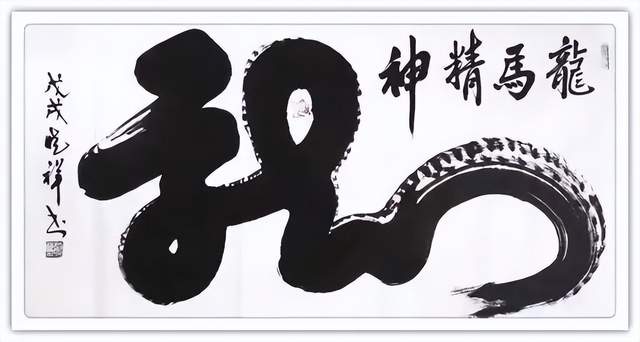 龍馬精神
龍
戊戌晓祥书